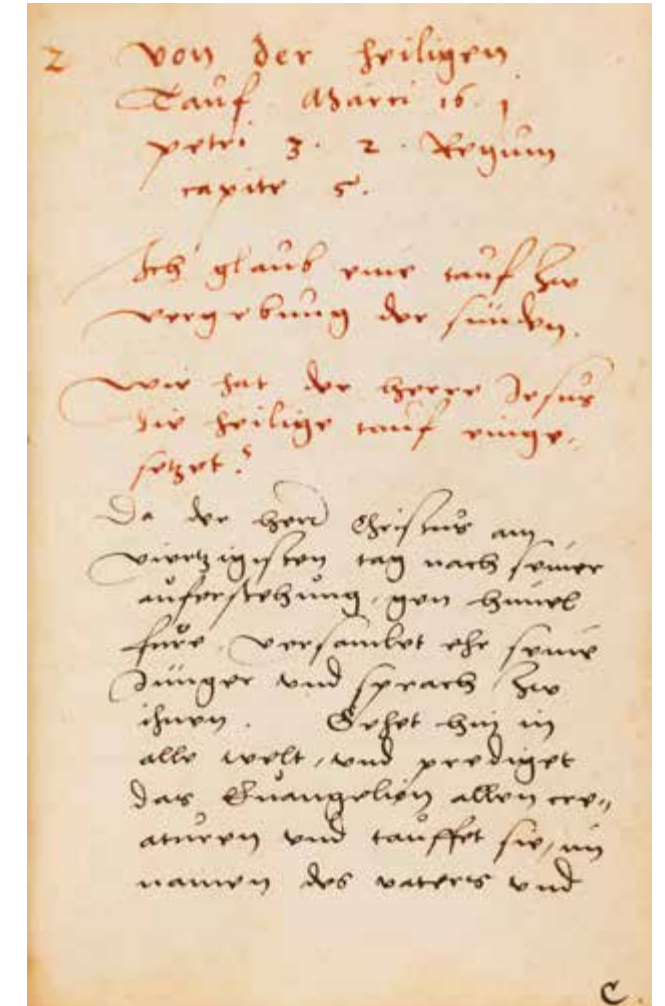 2 Von der heiligen
Tauf. Marci 16. 1
petri 3. 2. Regum
capite 5.
Ich glaub eine tauf zw
vergebung der sünden.
Wie hat der herre Jesus
die heilige tauf einge„
setzet?
Da der herr Christus am
viertzigisten tag nach seiner
auferstehung, gen himel
fure, versamlet ehr seine
Jünger vnd sprach zw
ihnen. Gehet hin in
alle welt, vnd prediget
das Euangelion allen cre„
aturen vnd tauffet sie, im
namen des vaters vnd
C.